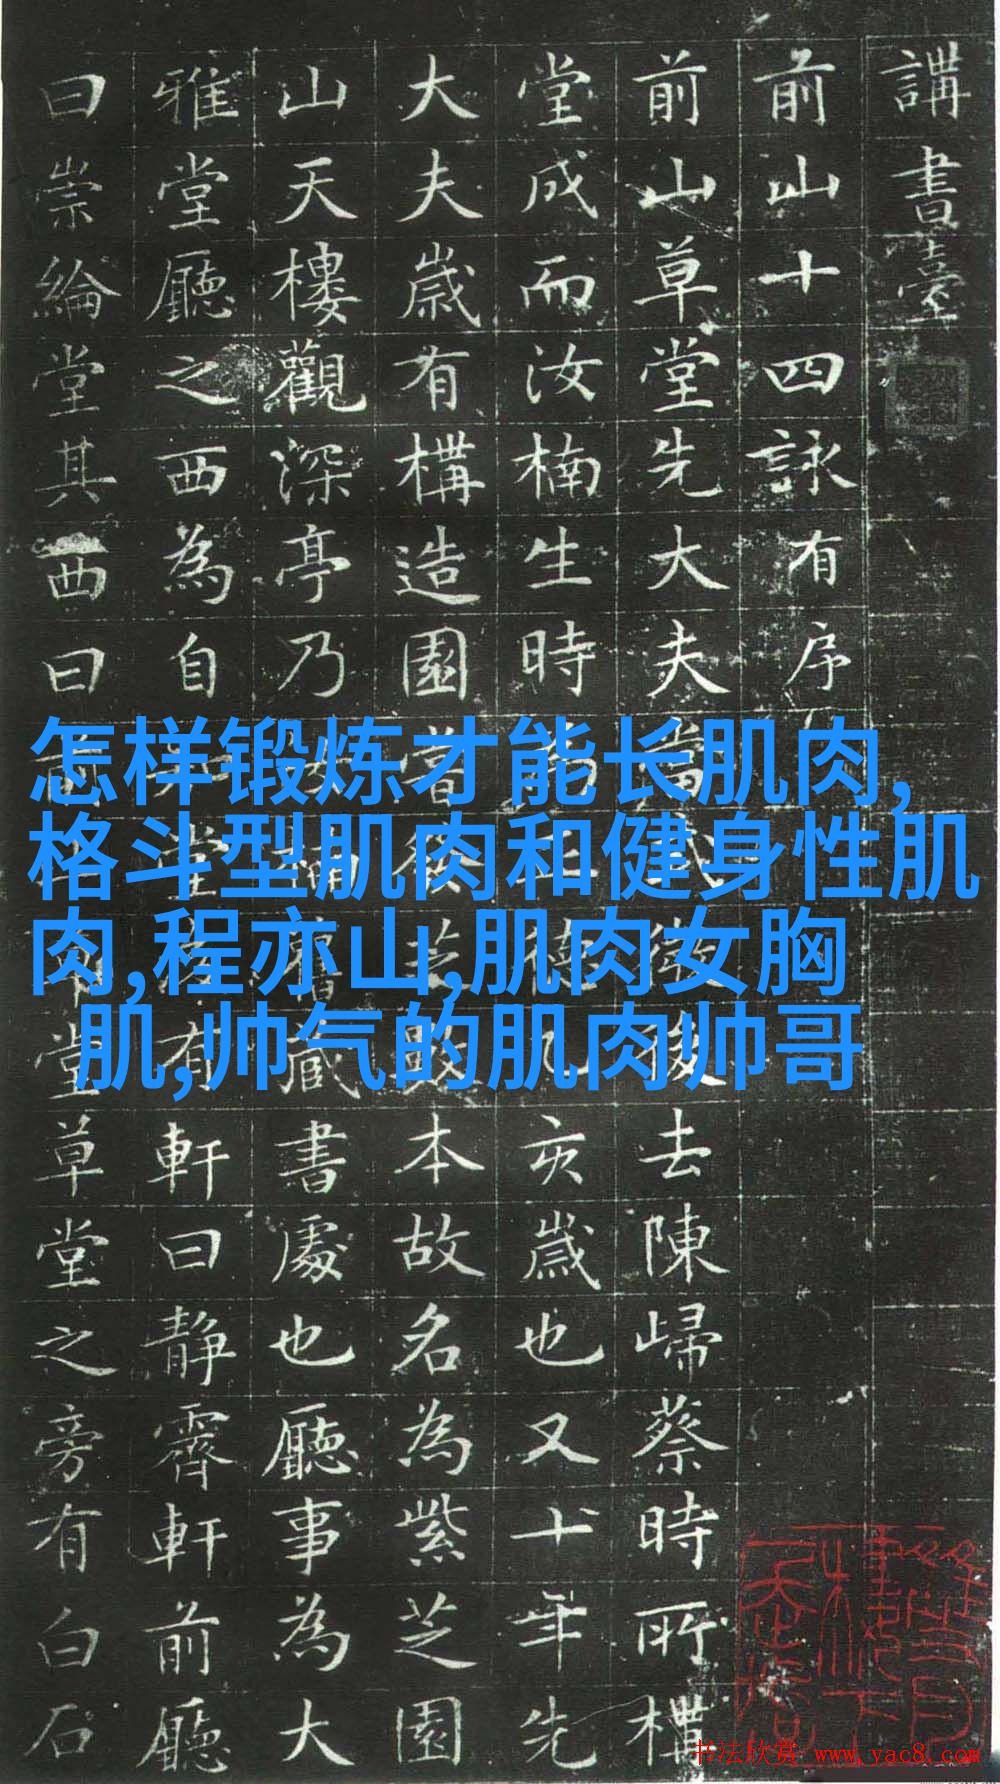 講書臺
前山十四詠有序
前山草堂先大夫
去陳歸蔡時所構
堂成而汝楠生時
亥歲也又十年先
大夫歲有構造園
本故名為紫芝園
山天樓觀深亭乃
書處也廳事為大
雅堂廳之西為自
有軒曰靜霽軒前廳
曰崇綸堂其西曰
堂草堂之旁有白石
怎样锻炼才能长肌肉,
格斗型肌肉和健身性肌
肉,程亦山,肌肉女胸
肌,帅气的肌肉帅哥
书法欣赏 www.yac8.com